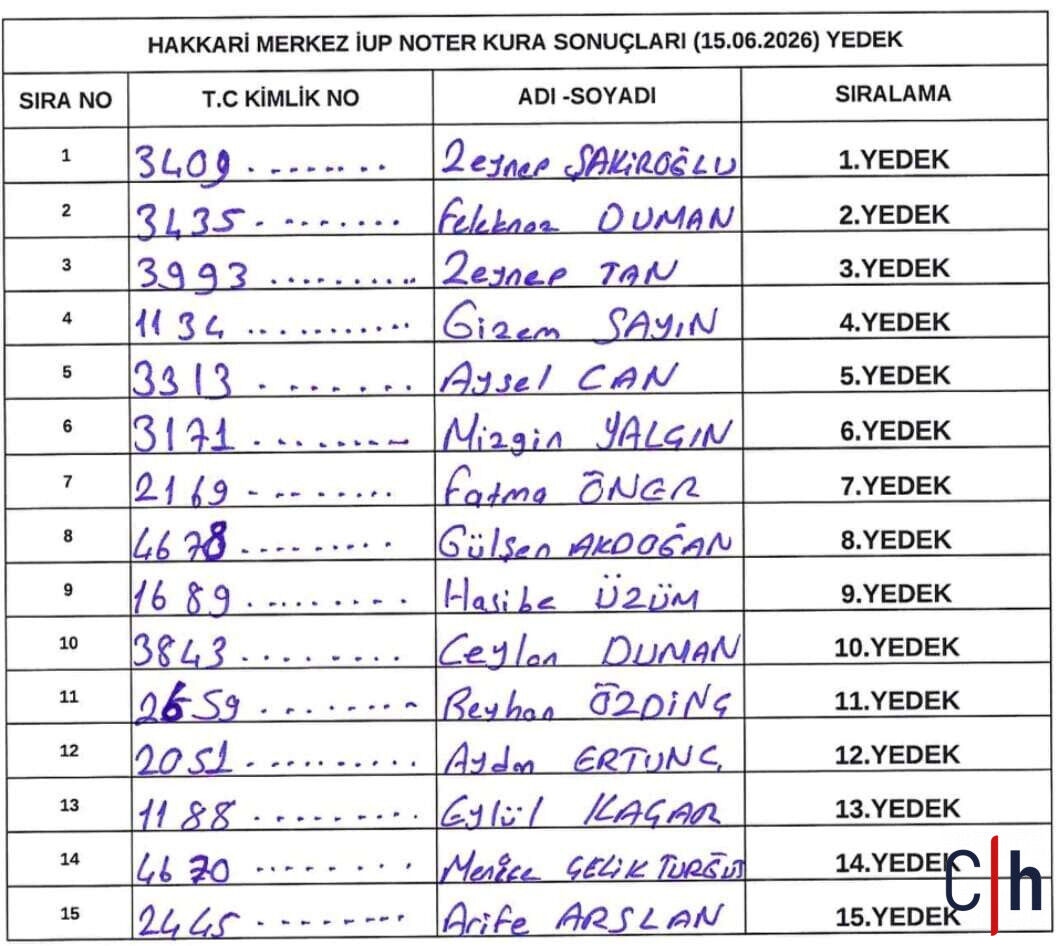 HAKKARİ MERKEZ İUP NOTER KURA SONUÇLARI (15.06.2026) YEDEK
SIRA NO T.C KİMLİK NO ADI -SOYADI SIRALAMA
1 3409 ......... Zeynep ŞAKİROĞLU 1.YEDEK
2 3435 ........ Feleknaz DUMAN 2.YEDEK
3 3993 .......... Zeynep TAN 3.YEDEK
4 1134 ........... Gizem SAYIN 4.YEDEK
5 3313 ........ Aysel CAN 5.YEDEK
6 3171 ......... Mizgin YALGIN 6.YEDEK
7 2169 ......... Fatma ÖNER 7.YEDEK
8 4678 ......... Gülşen AKDOĞAN 8.YEDEK
9 1689 ......... Hasibe ÜZÜM 9.YEDEK
10 3843 ........ Ceylan DUMAN 10.YEDEK
11 2659 ......... Reyhan ÖZDİNÇ 11.YEDEK
12 2051 .......... Aydan ERTUNÇ 12.YEDEK
13 1188 ......... Eylül KAÇAR 13.YEDEK
14 4670 ......... ÇELİK TURĞUT 14.YEDEK
15 2445 ......... Arife ARSLAN 15.YEDEK
C|h